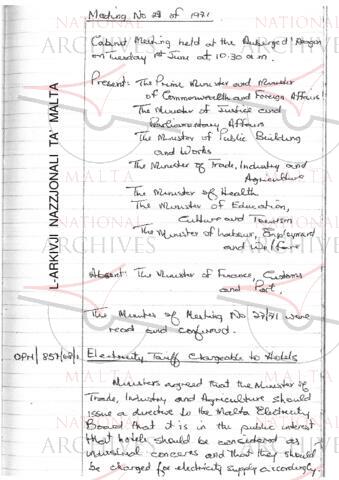 Meeting No 28 of 1971
Cabinet Meeting held at the Auberge d'Aragon
on Tuesday 1st June at 10.30 a.m.
Present: The Prime Minister and Minister
of Commonwealth and Foreign Affairs
The Minister of Justice and
Parliamentary Affairs
The Minister of Public Building
and Works
The Minister of Trade, Industry and
Agriculture
The Minister of Health
The Minister of Education,
Culture and Tourism
The Minister of Labour, Employment
and Welfare
Absent: The Minister of Finance, Customs
and Port.
The Minutes of Meeting No 27/71 were
read and confirmed.
OPM/857/68/1 Electricity Tariff Chargeable to Hotels
Ministers agreed that the Minister of
Trade, Industry and Agriculture should
issue a directive to the Malta Electricity
Board that it is in the public interest
that hotels should be considered as
industrial concerns and that they should
be charged for electricity supply accordingly.
L-ARKIVJI NAZZJONALI TA' MALTA
NATIONAL
ARCHIVES
MALTA